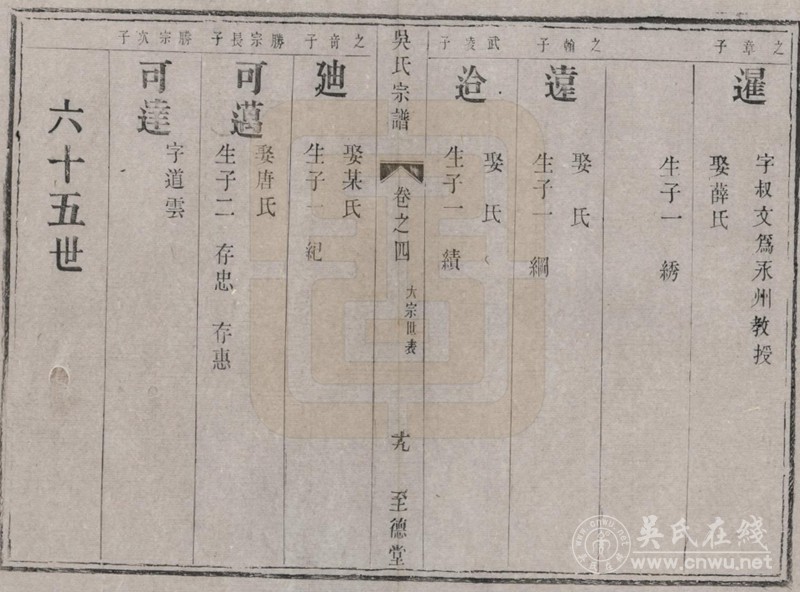 之章子
暹
字叔文爲永州教授
娶薛氏
生子一 綉
之翰子
遠
娶 氏
生子一 綱
武凌子
迨
娶 氏
生子一 績
吳氏宗譜
卷之四
大宗世表
十九
至德堂
之奇子
廸
娶某氏
生子一 紀
勝宗長子
可邁
娶唐氏
生子二 存忠 存惠
勝宗次子
可達
字道雲
六十五世
吴氏在线
www.cnwu.net